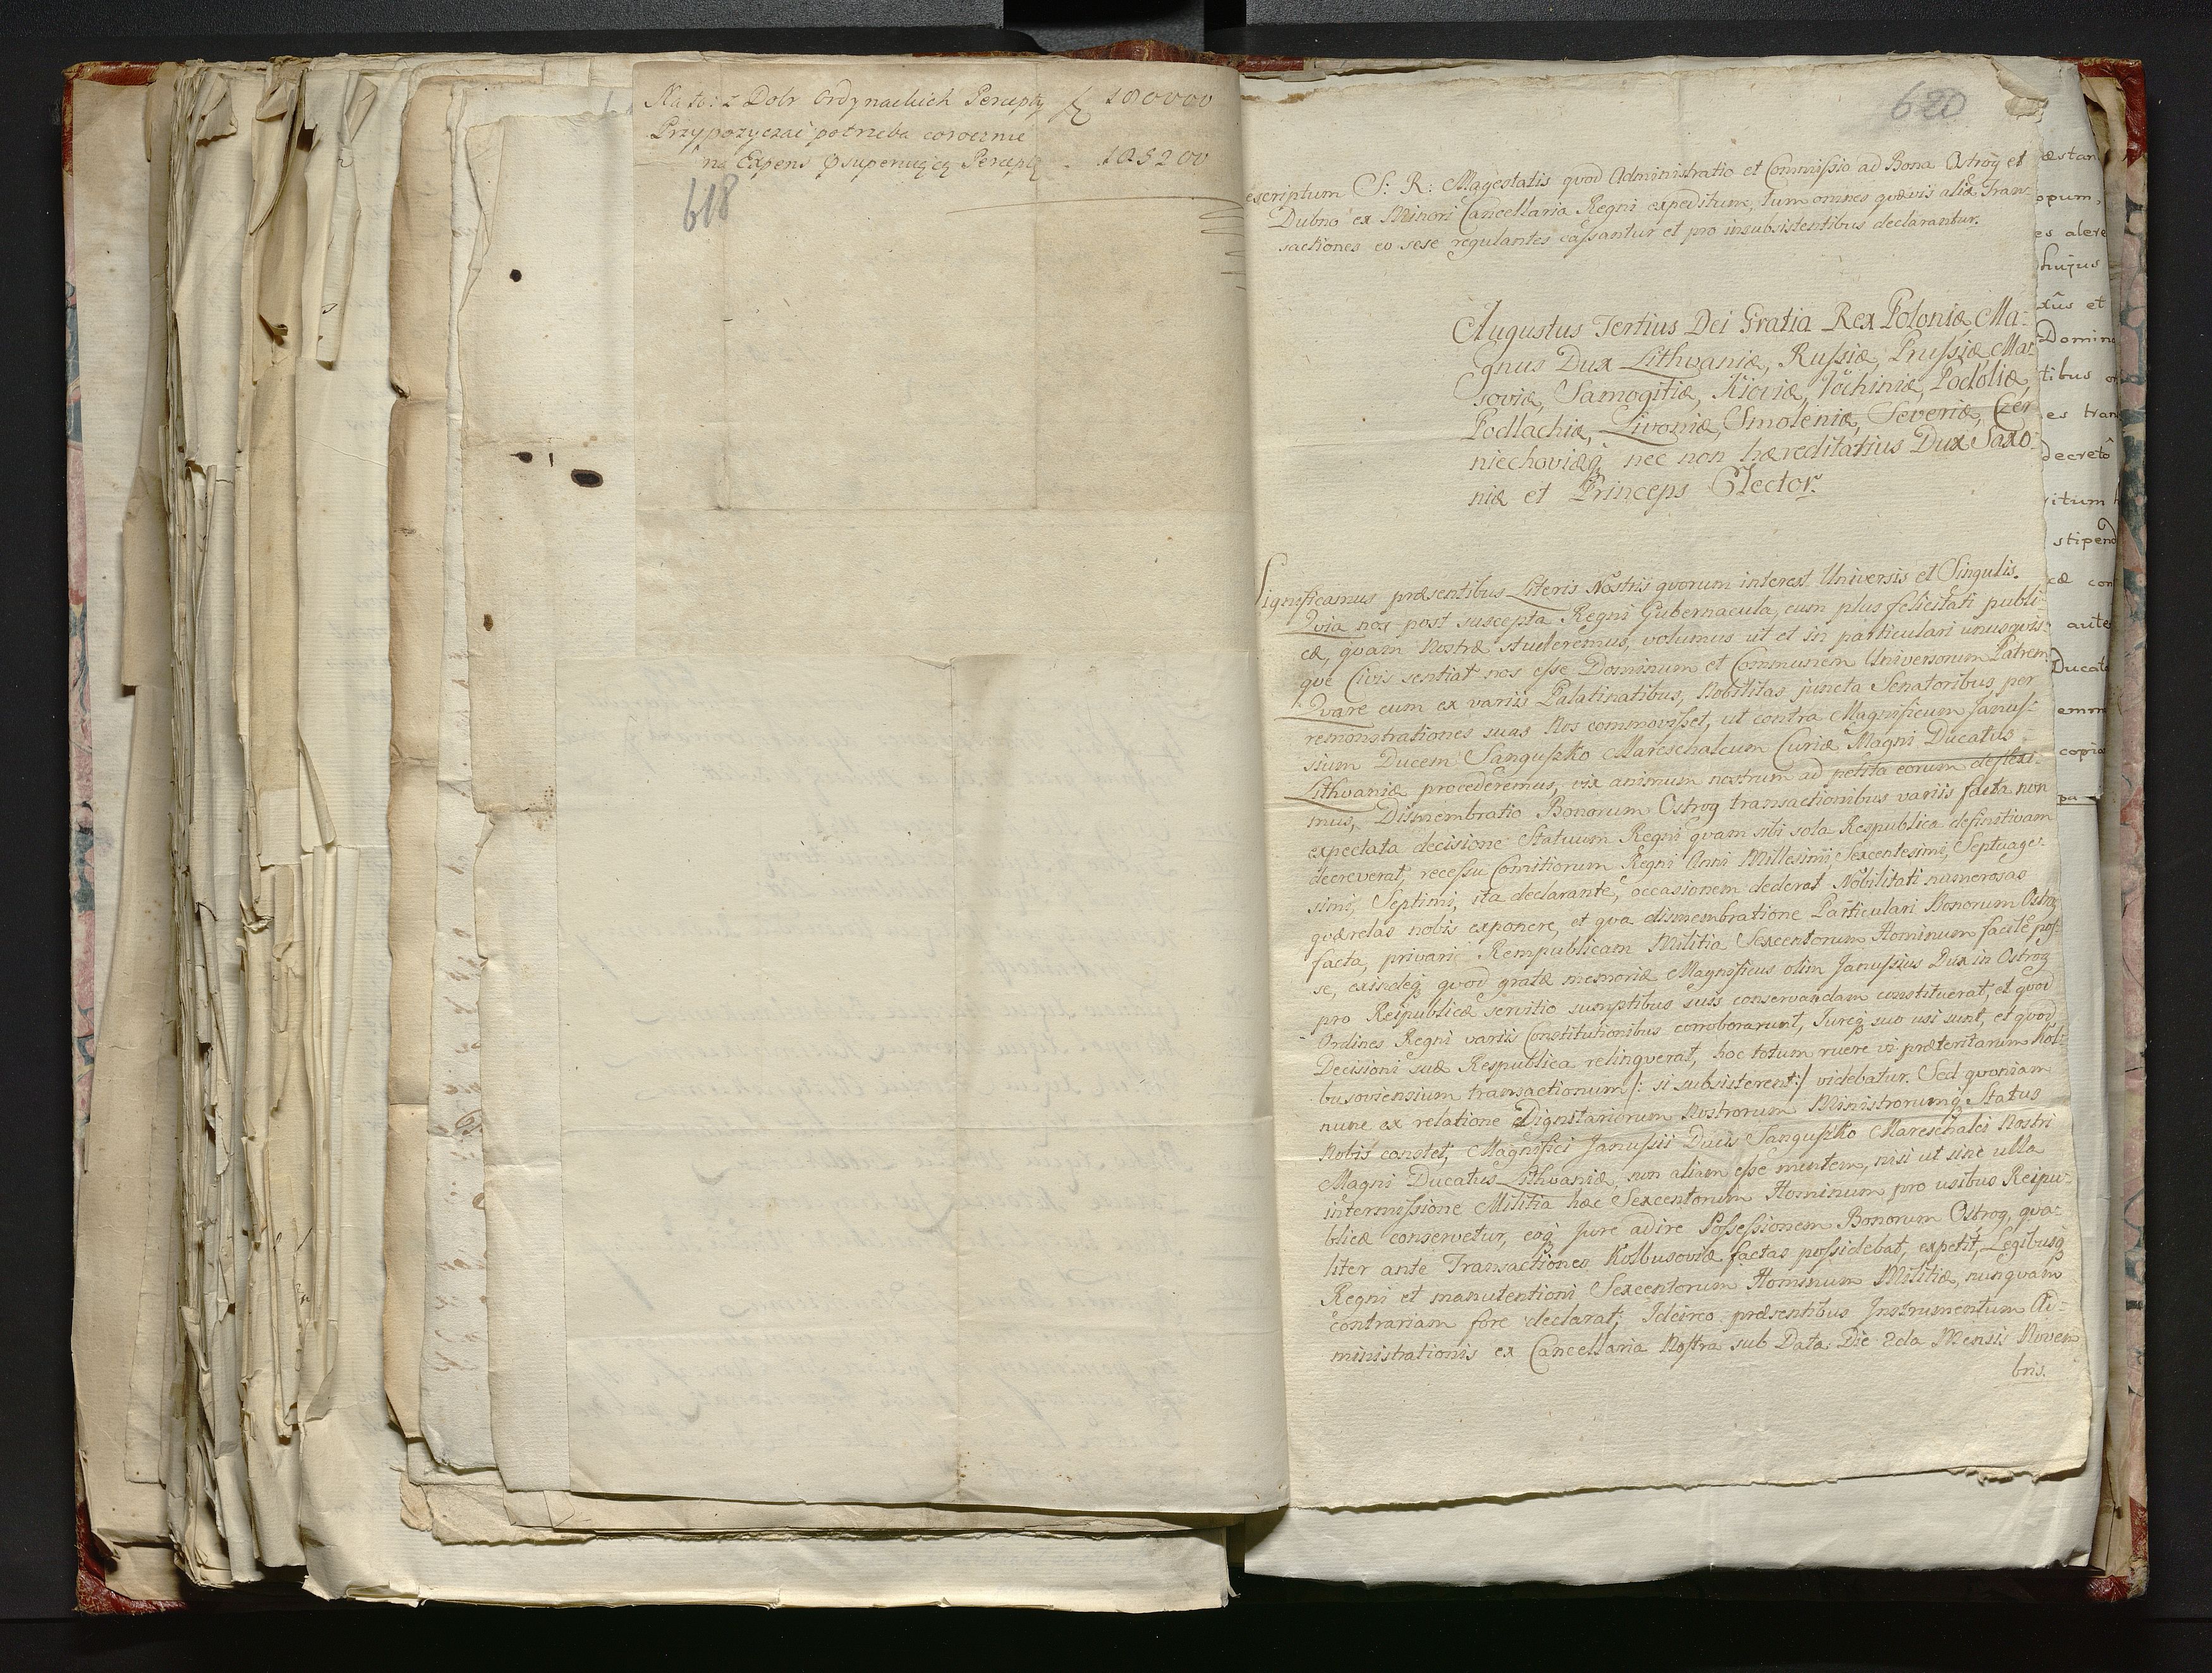 Na to: z Dobr Ordynackich Percepty f 180000
Przypozyczać potrzeba corocznie
na Expens superuiącą Perceptę 105200
618
620
escriptum S: R: Magestatis quod Administratio et Commissio ad Bona Ostrog et
Dubno ex Minori Cancellaria Regni expeditum, tum omnes quævis aliæ Tran-
sactiones eo sese regulantes cassantur et pro insubsistentibus declarantur.
Augustus Tertius Dei Gratia Rex Poloniæ, Ma-
gnus Dux Lithvaniæ, Russiæ, Prussiæ, Ma-
soviæ, Samogitiæ, Kijoviæ, Volhiniæ, Podoliæ,
Podlachiæ, Livoniæ, Smolеniæ, Severiæ, Czer
niechoviæq nec non hæreditarius Dux Saxo-
niæ et Princeps Elector.
Significamus præsentibus Literis Nostris quorum interest Universis et Singulis.
Qvia nos post suscepta Regni Gubernacula, cum plus felicitati publi-
cæ, qvam Nostræ studeremus, volumus ut et in particulari unusqvis-
que Civis sentiat nos esse Dominum et Communem Universorum Patrem
Qvare cum ex variis Palatinatibus, Nobilitas juncta Senatoribus per
remonstrationes suas Nos commovisset, ut contra Magnificum Janus-
sium Ducem Sanguszko Mareschalcum Curiæ Magni Ducatus
Lithvaniæ procederemus, vix animum nostrum ad petita eorum deflexi-
mus, Dismembratio Bonorum Ostrog transactionibus variis facta non
expectata decisione Statuum Regni qvam sibi sola Respublica definitivam
decreverat, recessu Comitiorum Regni Anni Millesimi, Sexcentesimi, Septuage-
simi, Septimi, ita declarante, occasionem dederat Nobilitati numerosas
qværelas nobis exponere, et qva dismembratione Particulari Bonorum Ostrog
facta, privari Rempublicam Militia Sexcentorum Hominum facile pos-
se, exindeq quod gratæ memoriæ Magnificus olim Janussius Dux in Ostrog
pro Reipublicæ servitio sumptibus suis conservandam constituerat, et qvod
Ordines Regni variis Constitutionibus corroborarunt, Jureq suo usi sunt, et qvod
Decisioni suæ Respublica relinqverat, hoc totum ruere vi præteritarum Kol-
busoviensium transactionum /: si subsisterent :/ videbatur. Sed qvoniam
nunc ex relatione Dignitariorum Nostrorum Ministrorumq Status
Nobis constet, Magnifici Janussii Ducis Sanguszko Mareschalci Nostri
Magni Ducatus Lithvaniæ, non aliam esse mentem, nisi ut sine ulla
intermissione Militia hæc Sexcentorum Hominum pro usibus Reipu-
blicæ conservetur, eoq jure adire Possessionem Bonorum Ostrog, qva-
liter ante Transactiones Kolbusoviæ factas possidebat, expetit, Legibusq
Regni et manutentioni Sexcentorum Hominum Militiæ, nunqvam
contrariam fore declarat; Idcirco præsentibus Instrumentum Ad-
ministrationis ex Cancellaria Nostra sub Data Die 2da Mensis Novem
bris.
æstan
opum,
es alere
hujus
xûs et
Domino
tibus
es tran
decretô
itum
stipend
cæ con
aute
Ducat
emm
copia